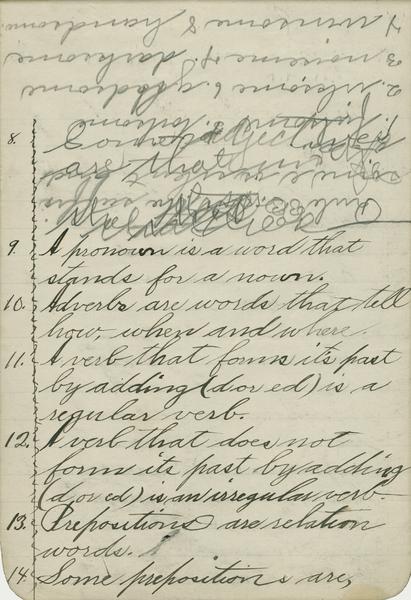 winsome 8 handsome
3 noisome darksome
2. 6. gladsome
8. Some adjectives
9. A pronown is a word that
stands for a nown.
10. Adverbs are words that tell
how, when and where.
11. A verb that forms its past
by adding (d or ed) is a
regular verb.
12. A verb that does not
form its past by adding
(d, or ed) is an irregular verb.
13. Prepositions are relation
words.
14. Some prepositions are,